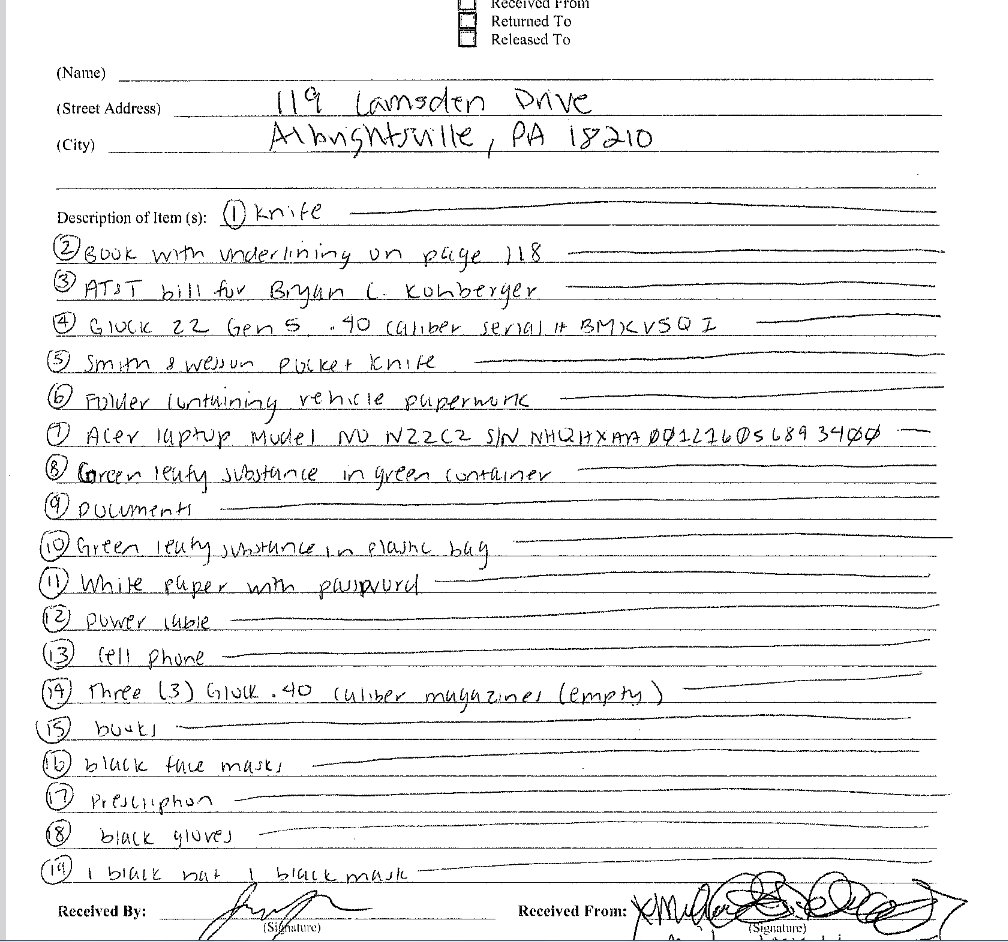 Received From
Returned To
Released To
(Name)
(Street Address) 119 Lamsden Drive
(City) Albrightsville, PA 18210
Description of Item (s): ① knife
② Book with underlining on page 118
③ AT&T bill for Bryan C. Kohberger
④ Glock 22 Gen 5 .40 caliber serial #
⑤ Smith & wesson pocket knife
⑥ Folder containing vehicle paperwork
⑦ Acer laptop Model NO N22C2 S/N
⑧ Green leafy substance in green container
⑨ Documents
⑩ Green leafy substance in plastic bag
⑪ White paper with password
⑫ power cable
⑬ cell phone
⑭ Three (3) Glock .40 caliber magazines (empty)
⑮ books
⑯ black face masks
⑰ Prescription
⑱ black gloves
⑲ 1 black hat 1 black mask
Received By: Received From:
(Signature) (Signature)